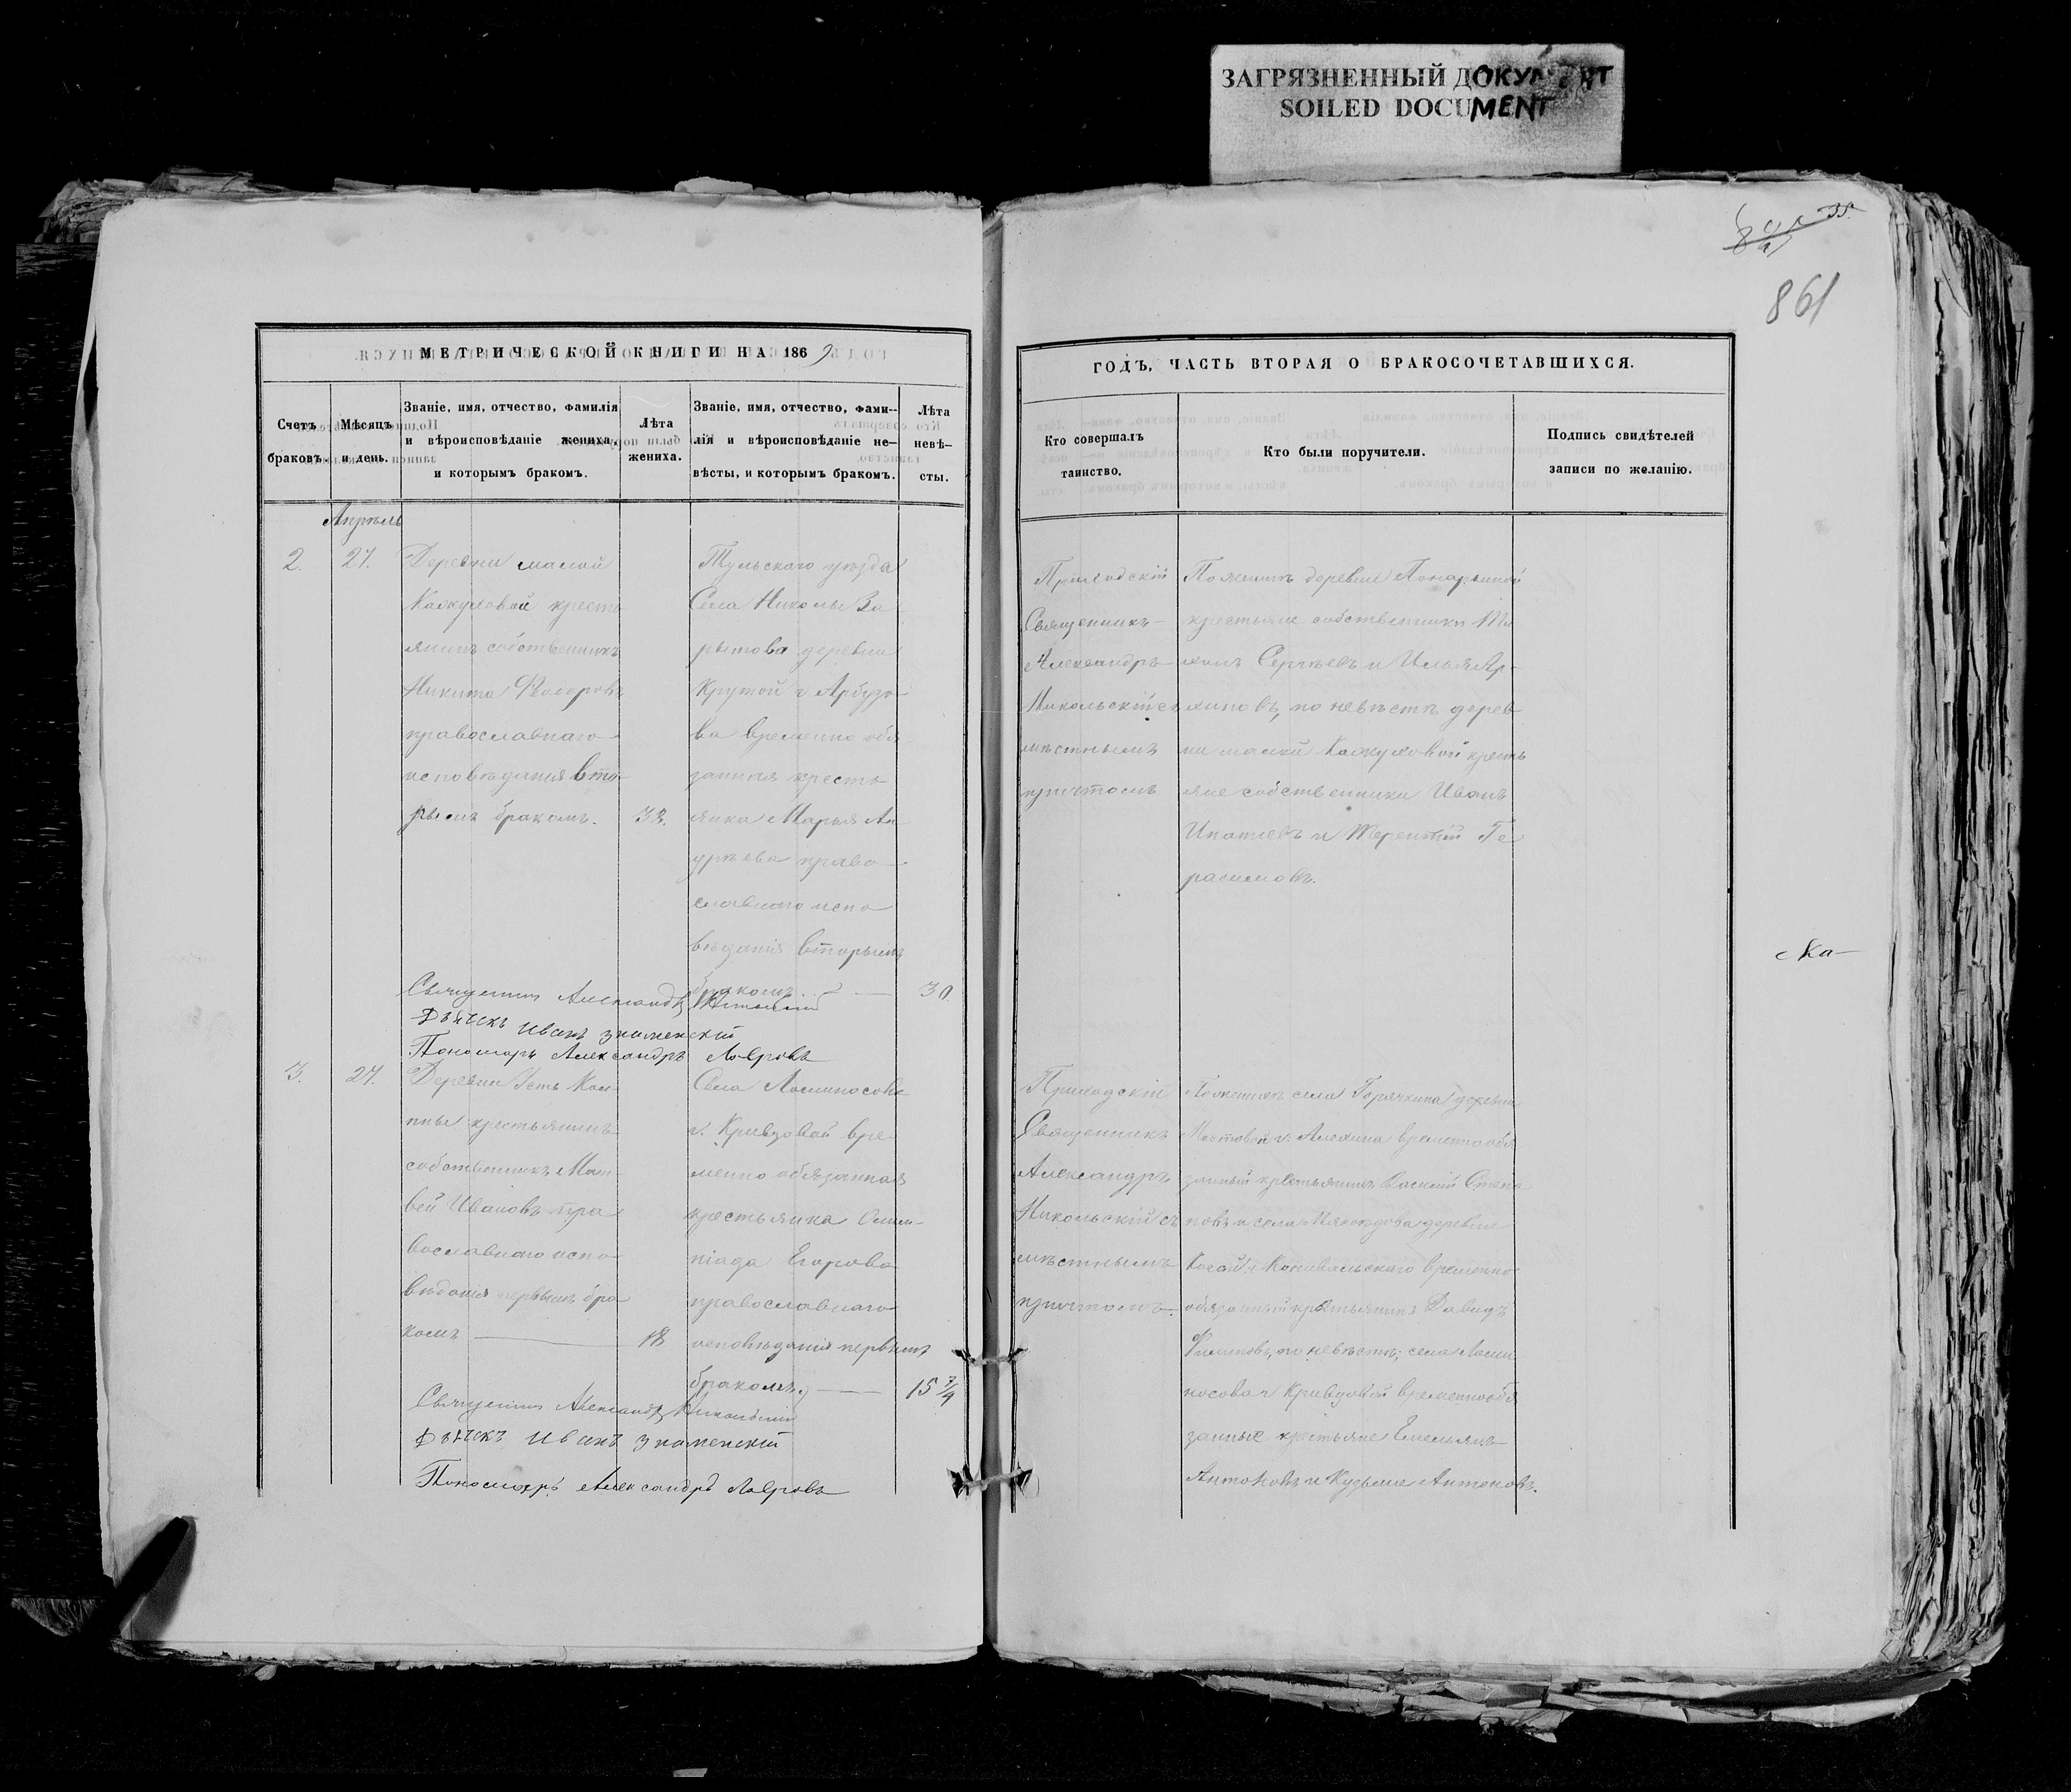 ЗАГРЯЗНЕННЫЙ ДОКУМЕНТ
SOILED DOCUMENT
861
МЕТРИЧЕСКОЙ КНИГИ НА 1869
Счетъ браковъ.
Мѣсяцъ и день.
Званіе, имя, отчество, фамилія
и вѣроисповѣданіе жениха,
и которымъ бракомъ.
Лѣта
жениха.
Званіе, имя, отчество, фами-
лія и вѣроисповѣданіе не-
вѣсты, и которымъ бракомъ.
Лѣта
невѣ-
сты.
Апрѣль
2.
27.
Деревни малой
кресть
янинъ собственникъ
Никита Ѳедоровъ
православнаго
исповѣданія вто
рымъ бракомъ.
38.
Тульскаго уѣзда
Села Николы За
рытова деревни
Крутой г Арбузо
ва временно обя
занная кресть
янка Марья Ан
дрѣева право
славнаго испо
вѣданія вторымъ
бракомъ
30.
Священникъ Александръ Никольскій
Дьячекъ Иванъ Знаменскій
Пономарь Александръ Лавровъ
3.
27.
Деревни Усть Кол
пны крестьянинъ
собственникъ Мат
вей Ивановъ пра
вославнаго испо
вѣданія первымъ бра
комъ
18
Села Лосиносова
г. Кривцовой вре
менно обязанная
крестьянка Олим
піада Егорова
православнаго
исповѣданія первымъ
бракомъ.
15
Священникъ Александръ Никольскій
Дьячекъ Иванъ Знаменскій
Пономарь Александръ Лавровъ
ГОДЪ, ЧАСТЬ ВТОРАЯ О БРАКОСОЧЕТАВШИХСЯ.
Кто совершалъ
таинство.
Кто были поручители.
Подпись свидѣтелей
записи по желанію.
Приходскій
Священникъ
Александръ
Никольскій съ
мѣстнымъ
причтомъ
По женихѣ деревни
крестьяне собственники
Сергѣевъ и Илья Ар-
хиповъ, по невѣстѣ дерев
ни малой кресть
яне собственники Иванъ
Ипатьевъ и Терентій Ге
расимовъ.
Ма-
Приходскій
Священникъ
Александръ
Никольскій съ
мѣстнымъ
причтомъ.
По женихѣ села Горячкина деревни
Мостовой г. Алехина временнообя
занный крестьянинъ Василій Степа
новъ и села Мясоѣдова деревни
временно
обязанный крестьянинъ Давидъ
Филиповъ, по невѣстѣ; села Лоси
носова г Кривцовой временнообя
занные крестьяне Емельянъ
Антоновъ и Кузьма Антоновъ.